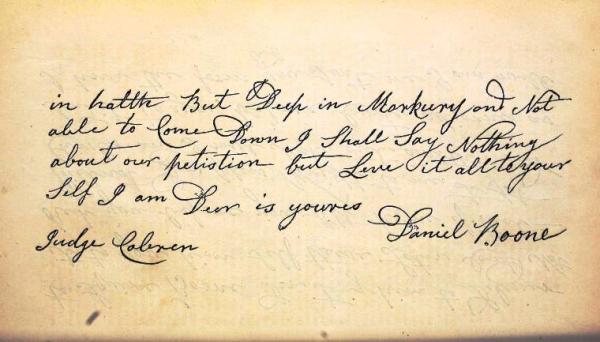 in halth But Deep in Markury and Not
able to Come Down I Shall Say Nothing
about our petistion but Leve it all to your
Self I am Deer is youres
Daniel Boone
Judge Coleren